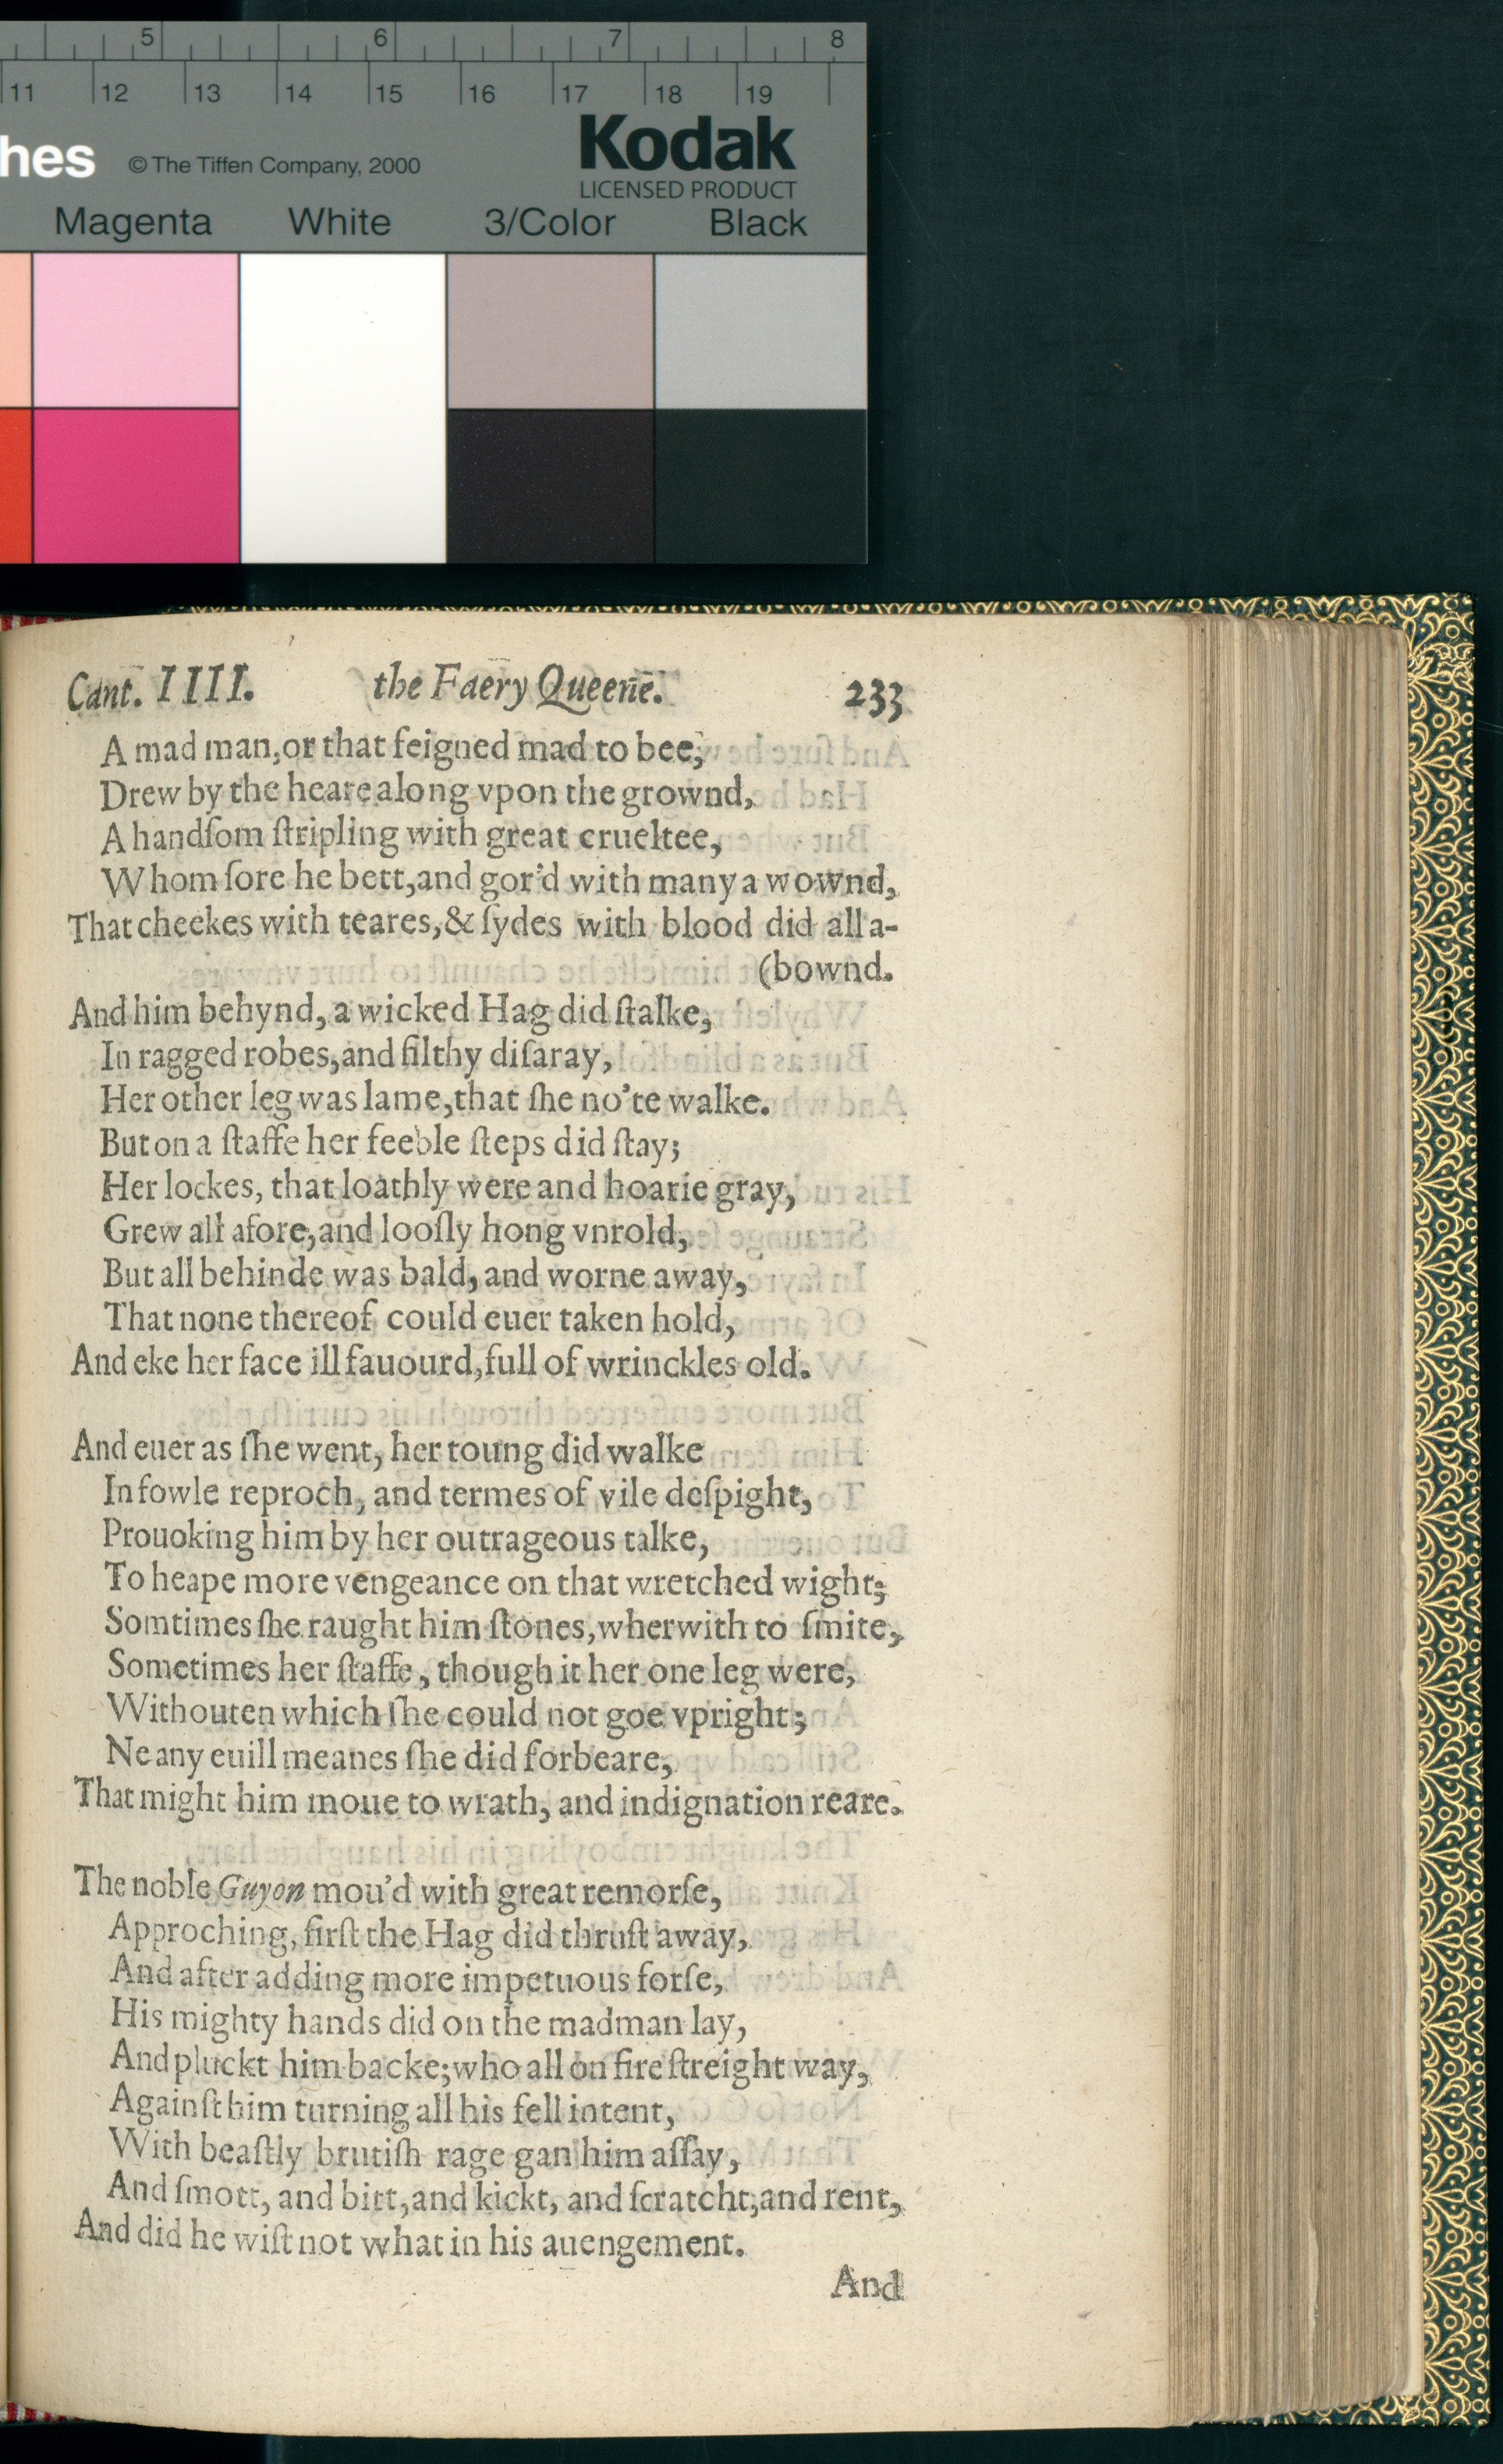 5 6 7 8
11 12 13 14 15 16 17 18 19
hes © The Tiffen Company, 2000
Kodak
LICENSED PRODUCT
Magenta White 3/Color Black
Cant. IIII. the Faery Queene. 233
A mad man, or that feigned mad to bee,
Drew by the heare along vpon the grownd,
A handſom ſtripling with great crueltee,
Whom ſore he bett, and gor'd with many a wownd,
That cheekes with teares, & ſydes with blood did all a-
(bownd.
And him behynd, a wicked Hag did ſtalke,
In ragged robes, and filthy diſaray,
Her other leg was lame, that ſhe no'te walke.
But on a ſtaffe her feeble ſteps did ſtay;
Her lockes, that loathly were and hoarie gray,
Grew all afore, and looſly hong vnrold,
But all behinde was bald, and worne away,
That none thereof could euer taken hold,
And eke her face ill fauourd, full of wrinckles old.
And euer as ſhe went, her toung did walke
In fowle reproch, and termes of vile deſpight,
Prouoking him by her outrageous talke,
To heape more vengeance on that wretched wight;
Somtimes ſhe raught him ſtones, wherwith to ſmite,
Sometimes her ſtaffe, though it her one leg were,
Withouten which ſhe could not goe vpright;
Ne any euill meanes ſhe did forbeare,
That might him moue to wrath, and indignation reare.
The noble Guyon mou'd with great remorſe,
Approching, firſt the Hag did thruſt away,
And after adding more impetuous forſe,
His mighty hands did on the madman lay,
And pluckt him backe; who all on fire ſtreight way,
Againſt him turning all his fell intent,
With beaſtly brutiſh rage gan him aſſay,
And ſmott, and bitt, and kickt, and ſcratcht, and rent,
And did he wiſt not what in his auengement.
And